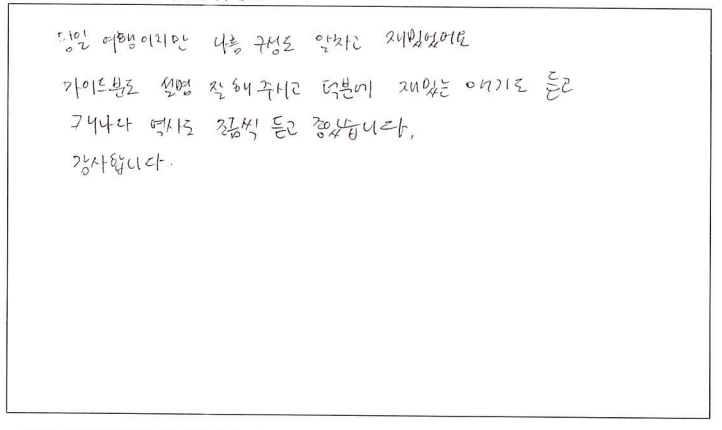 당일 여행이지만 나름 구성도 알차고 재밌었어요
가이드분도 설명 잘 해주시고 덕분에 재밌는 얘기도 듣고
그 나라 역사도 조금씩 듣고 좋았습니다.
감사합니다.